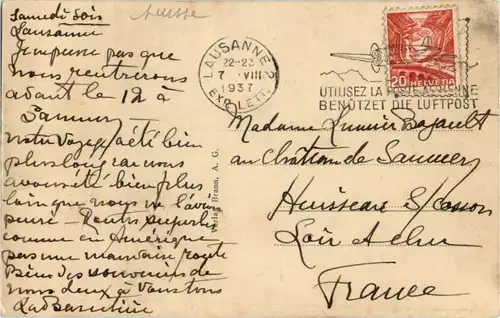 Suisse
Samedi Soir
Lausanne
Je ne pense pas que
nous rentrerons
avant le 12 à
notre voyage a été bien
plus long car nous
avons été bien plus
loin que nous ne l'avions
pensé - Routes superbes
comme en Amérique
pas une mauvaise route
Bien des souvenirs de
nous deux à vous tous
LAUSANNE 2
22-23
7 VIII
1937
EXP. LETT.
UTILISEZ LA POSTE AÉRIENNE
BENÜTZET DIE LUFTPOST
20 HELVETIA
Verlag Braun, A. G.
Madame
au Château de
Huisseau S/Cosson
Loir et Cher
France